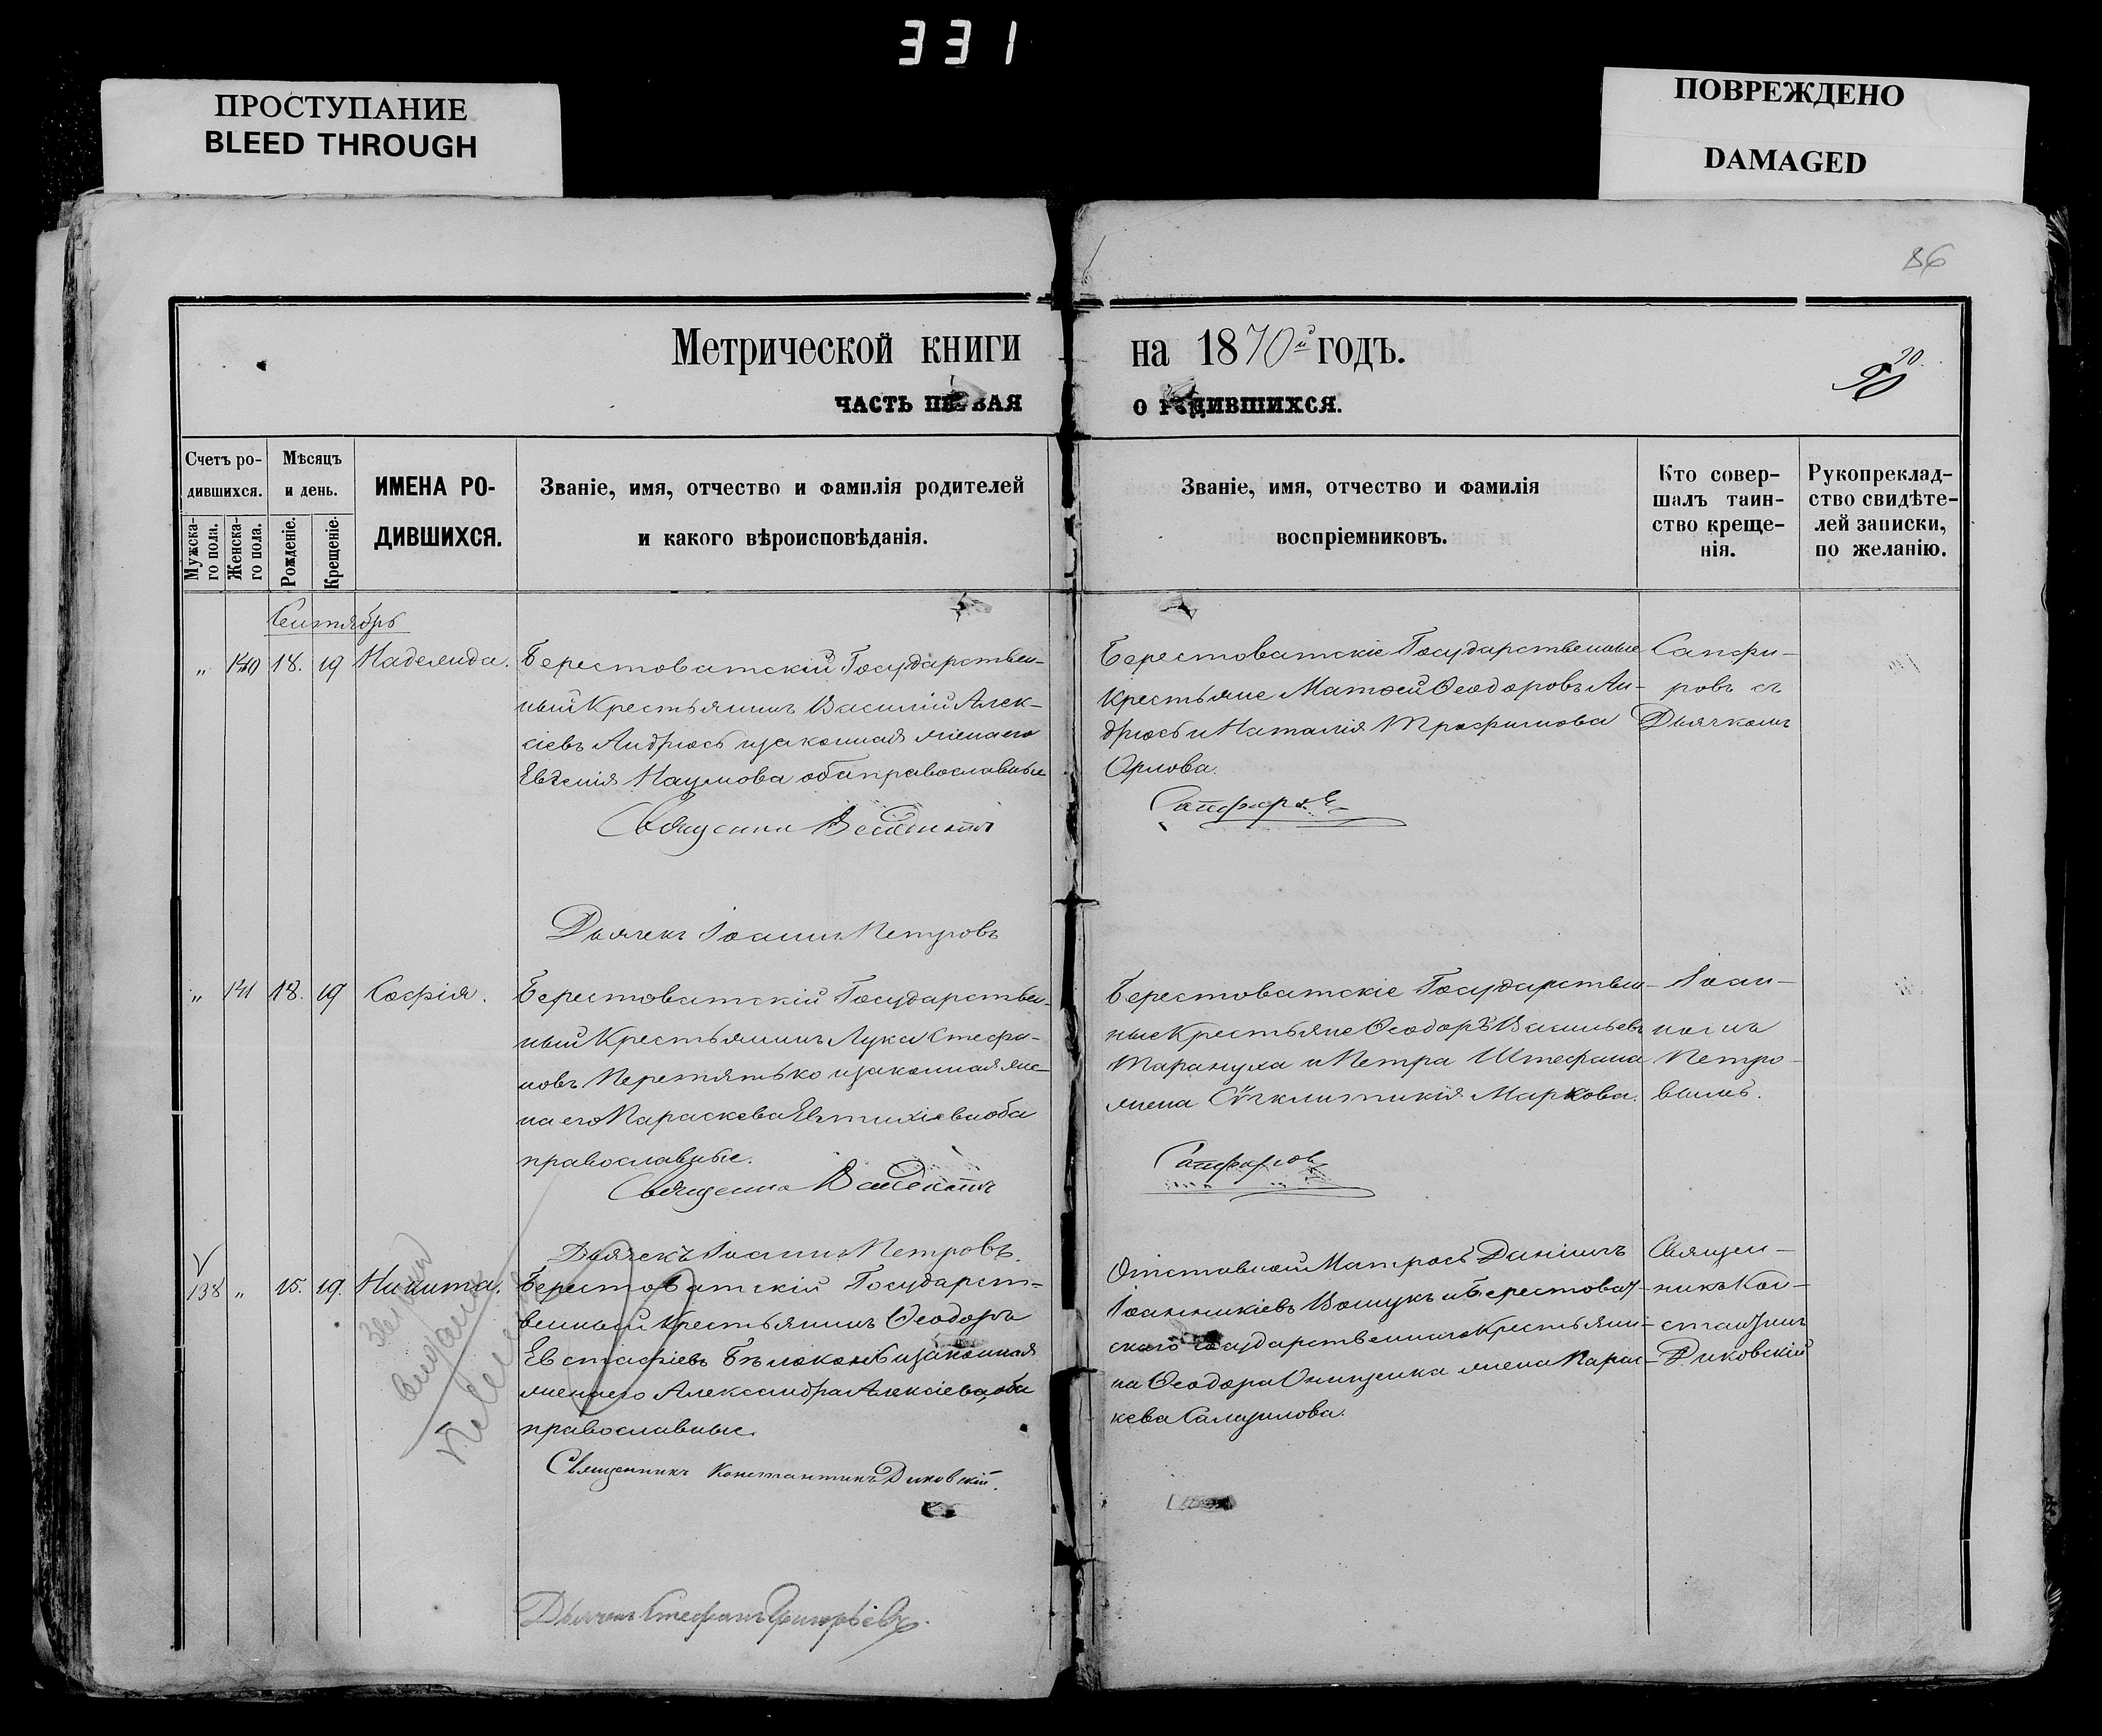 331
ПРОСТУПАНИЕ
BLEED THROUGH
ПОВРЕЖДЕНО
DAMAGED
86
Метрической книги на 1870й годъ.
90
ЧАСТЬ ПЕРВАЯ О РОДИВШИХСЯ.
Счетъ родившихся.
Мужскаго пола.
Женскаго пола.
Мѣсяцъ и день.
Рожденіе.
Крещеніе.
ИМЕНА РО-
ДИВШИХСЯ.
Званіе, имя, отчество и фамилія родителей
и какого вѣроисповѣданія.
Званіе, имя, отчество и фамилія
воспріемниковъ.
Кто совер-
шалъ таин-
ство креще-
нія.
Рукоприклад-
ство свидѣте-
лей записки,
по желанію.
Сентябрь
„ 140 18. 19 Надежда.
Берестоватскій Государствен-
ный Крестьянинъ Василій Алек-
сіевъ Андрюсь и законная жена его
Евгенія Наумова оба православные
Священникъ
Дьячекъ Іоаннъ Петровъ
Берестоватскіе Государственные
Крестьяне Матѳей Ѳеодоровъ Ан-
дрюсь и Наталія Трофимова
Орлова.
Сапфировъ
Сапфи-
ровъ съ
Дьячкомъ
„ 141 18. 19 Софія.
Берестоватскій Государствен-
ный Крестьянинъ Лука Стефа-
новъ Перетятько и законная же-
на его Параскева Евтихіева оба
православные.
Священникъ
Дьячекъ Іоаннъ Петровъ.
Берестоватскіе Государствен-
ные Крестьяне Ѳеодоръ Васильевъ
Тарануха и Петра Штефана
жена Сѵнклитикія Маркова.
Сапфировъ
Іоан-
номъ
Петро-
вымъ.
138 „ 15. 19. Никита.
Берестоватскій Государст-
венный Крестьянинъ Ѳеодоръ
Евстафіевъ Бѣлоконь и законная
жена его Александра Алексіева, оба
православные.
Священникъ Константинъ Диковскій.
Дьячекъ Стефанъ Григорьевъ.
Отставной Матросъ Даніилъ
Іоанникіевъ Вощукъ и Берестоват-
скаго Государственнаго Крестьяни-
на Ѳеодора Онищенка жена Парас-
кева Самуилова.
Священ-
никъ Кон-
стантинъ
Диковскій